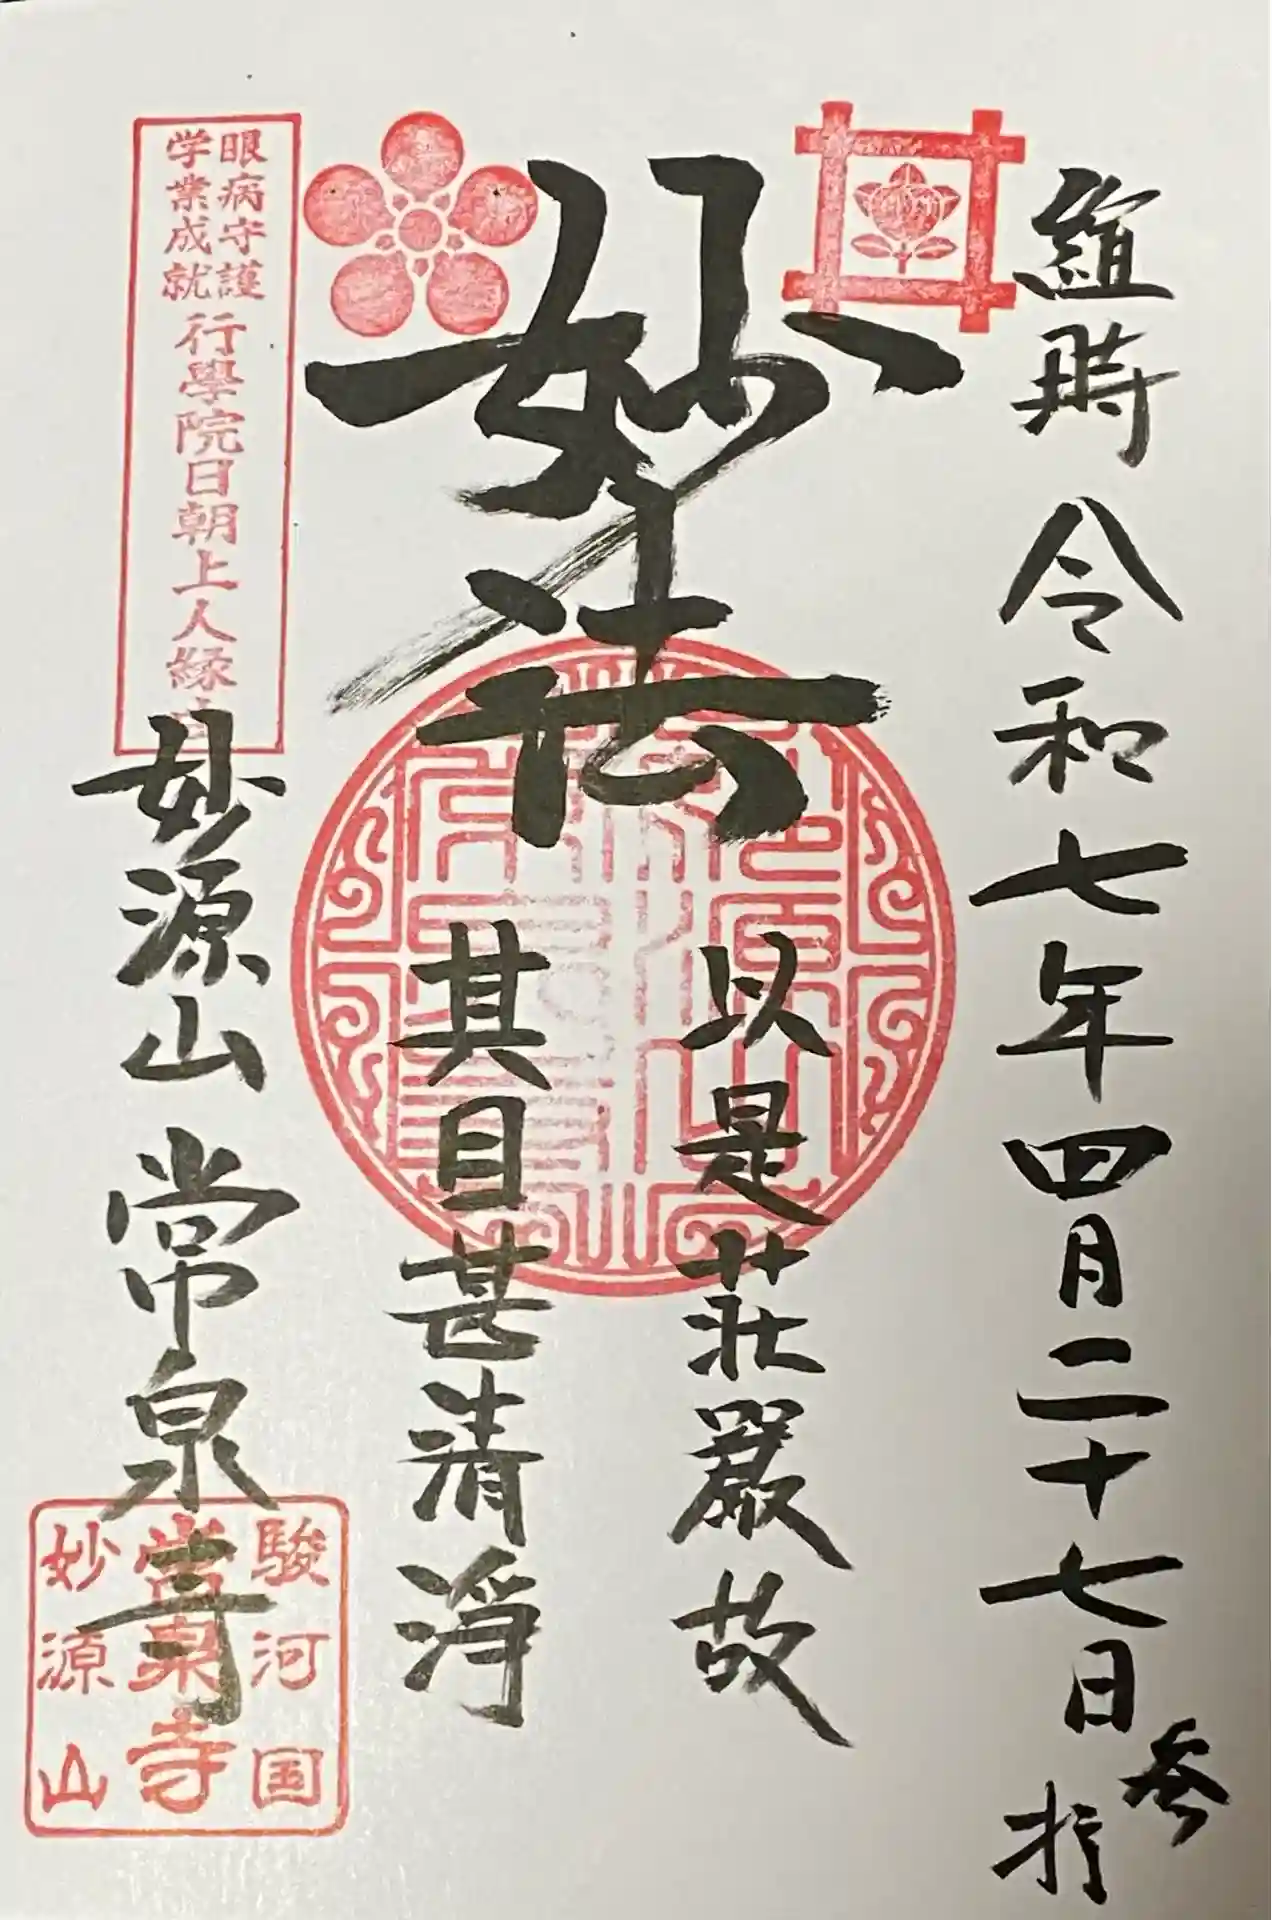 維時 令和七年四月二十七日 参拝
妙法
以是荘厳故
其目甚清浄
眼病守護
学業成就
行學院日朝上人縁
妙源山 常泉寺
駿河国
常泉寺
妙源山